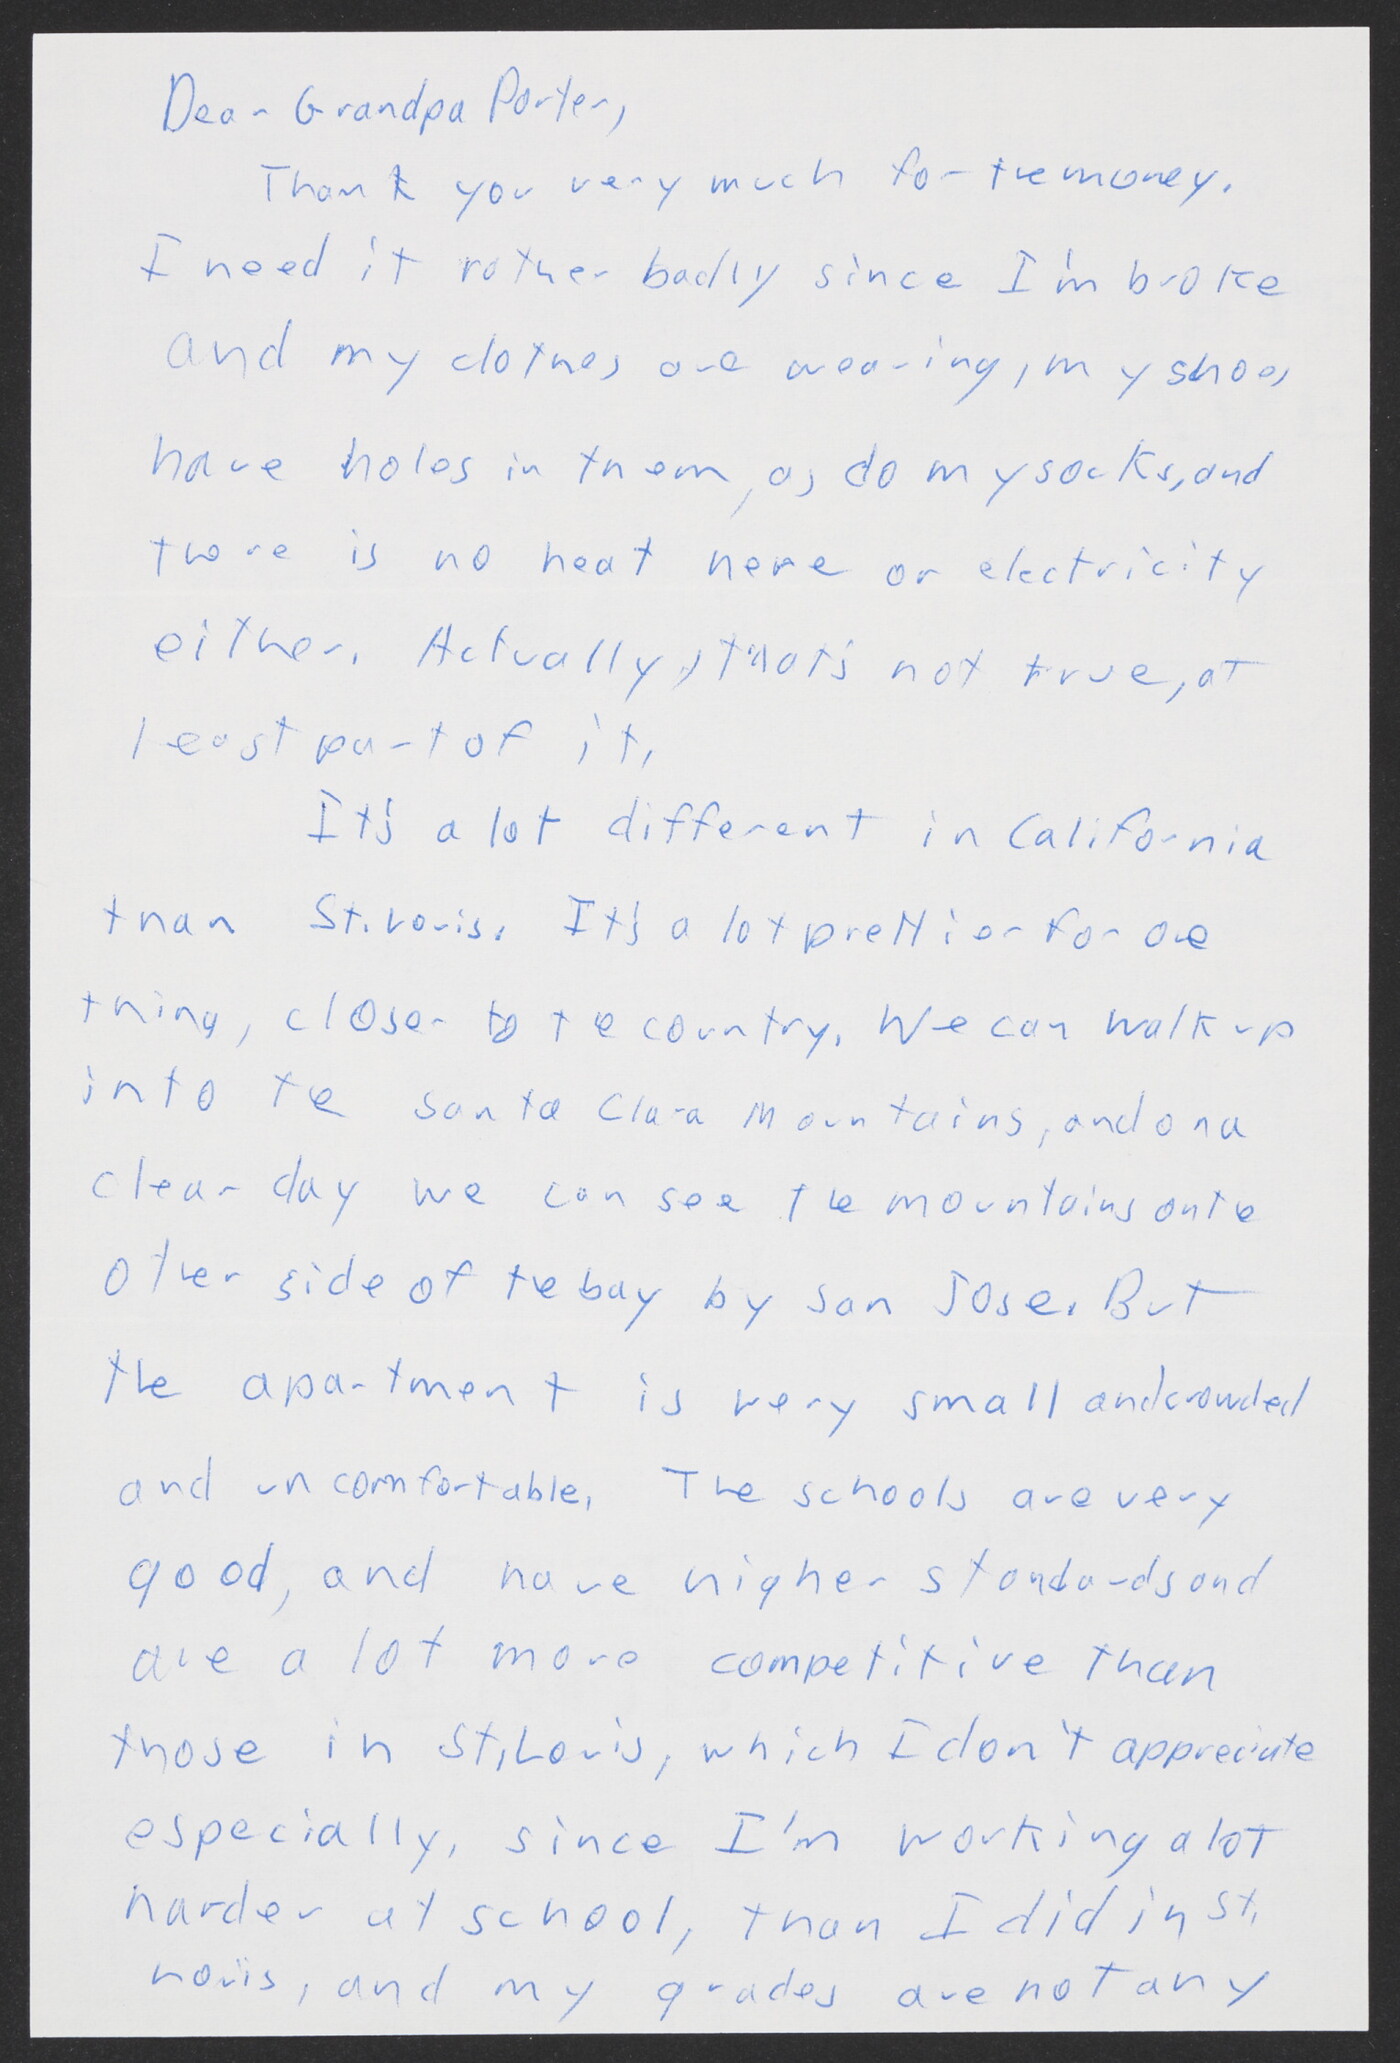 Dear Grandpa Porter,
Thank you very much for the money.
I need it rather badly since I'm broke
and my clothes are wearing, my shoes
have holes in them, as do my socks, and
there is no heat here or electricity
either. Actually, that's not true, at
least part of it.
It's a lot different in California
than St. Louis. It's a lot prettier for one
thing, closer to the country. We can walk up
into the Santa Clara Mountains, and on a
clear day we can see the mountains on the
other side of the bay by San Jose. But
the apartment is very small and crowded
and uncomfortable. The schools are very
good, and have higher standards and
are a lot more competitive than
those in St. Louis, which I don't appreciate
especially, since I'm working a lot
harder at school, than I did in St.
Louis, and my grades are not any